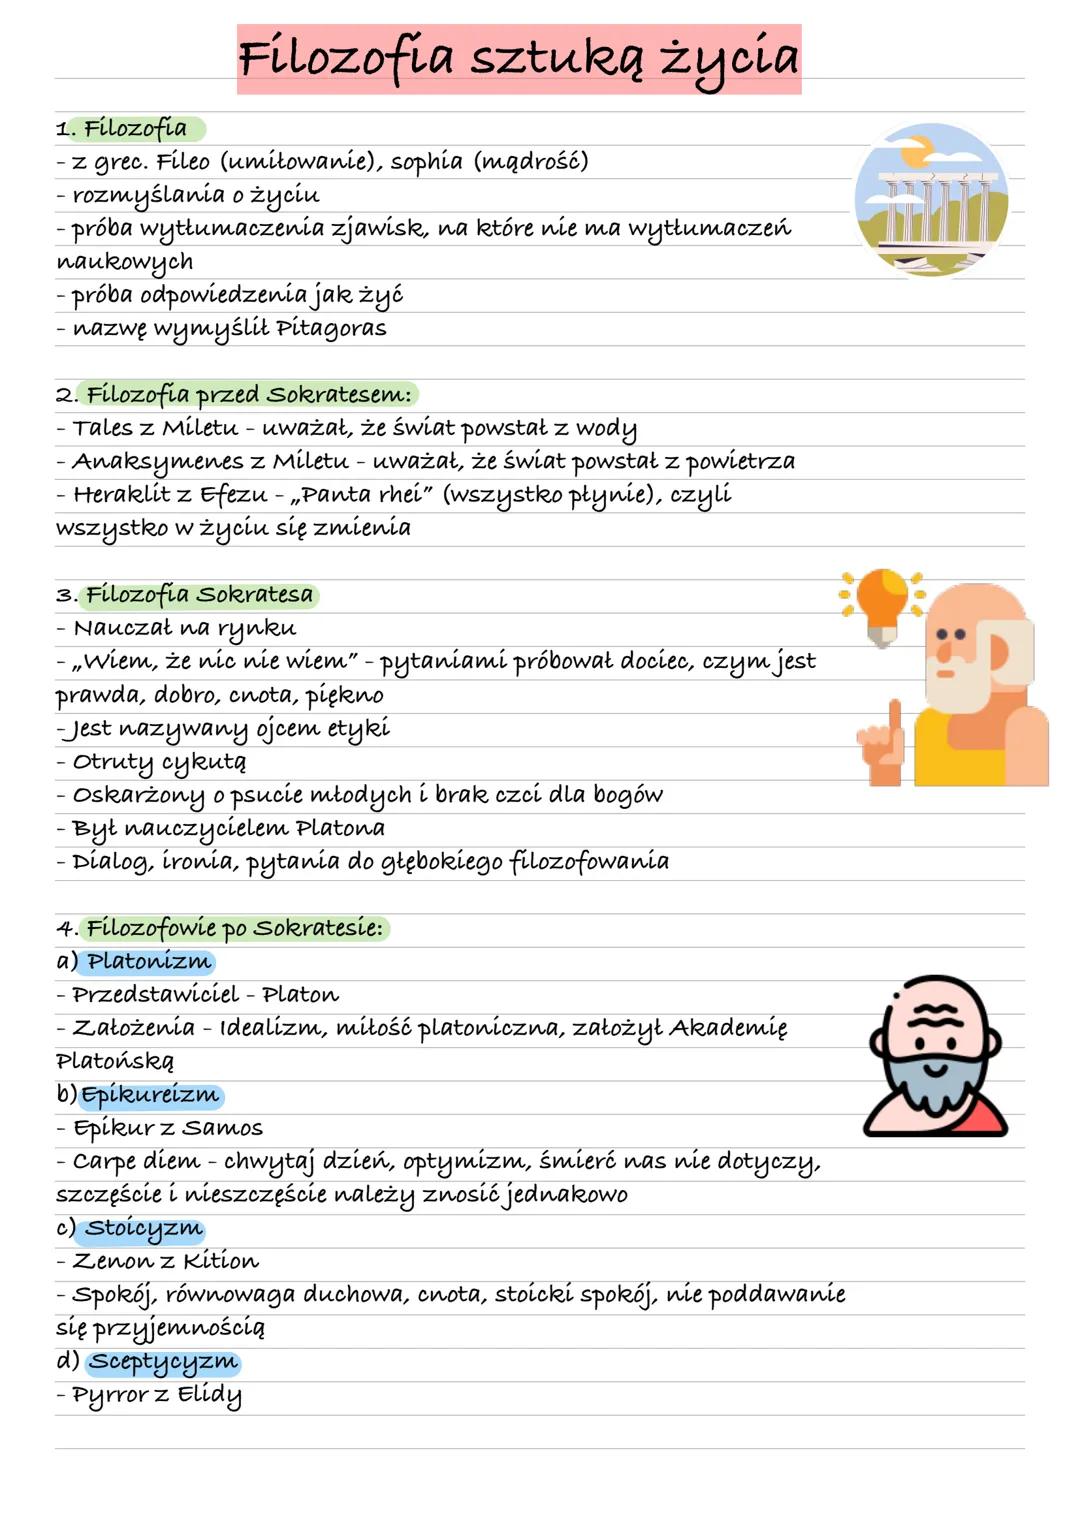 Filozofia sztuką życia
1. Filozofia
- z grec. Fileo (umiłowanie), sophia (mądrość)
- rozmyślania o życiu
- próba wytłumaczenia zjawisk, na które nie ma wytłumaczeń
naukowych
- próba odpowiedzenia jak żyć
- nazwę wymyślił Pitagoras
2. Filozofia przed Sokratesem:
- Tales z Miletu - uważał, że świat powstał z wody
- Anaksymenes z Miletu - uważał, że świat powstał z powietrza
- Heraklit z Efezu - „Panta rhei” (wszystko płynie), czyli
wszystko w życiu się zmienia
3. Filozofia Sokratesa
- Nauczał na rynku
- „Wiem, że nic nie wiem” - pytaniami próbował dociec, czym jest
prawda, dobro, cnota, piękno
- Jest nazywany ojcem etyki
- Otruty cykutą
- Oskarżony o psucie młodych i brak czci dla bogów
- Był nauczycielem Platona
- Dialog, ironia, pytania do głębokiego filozofowania
4. Filozofowie po Sokratesie:
a) Platonizm
- Przedstawiciel - Platon
- Założenia - Idealizm, miłość platoniczna, założył Akademię
Platońską
b) Epikureizm
- Epikur z Samos
- Carpe diem - chwytaj dzień, optymizm, śmierć nas nie dotyczy,
szczęście i nieszczęście należy znosić jednakowo
c) Stoicyzm
- Zenon z Kition
- Spokój, równowaga duchowa, cnota, stoicki spokój, nie poddawanie
się przyjemnością
d) Sceptycyzm
- Pyrror z Elidy